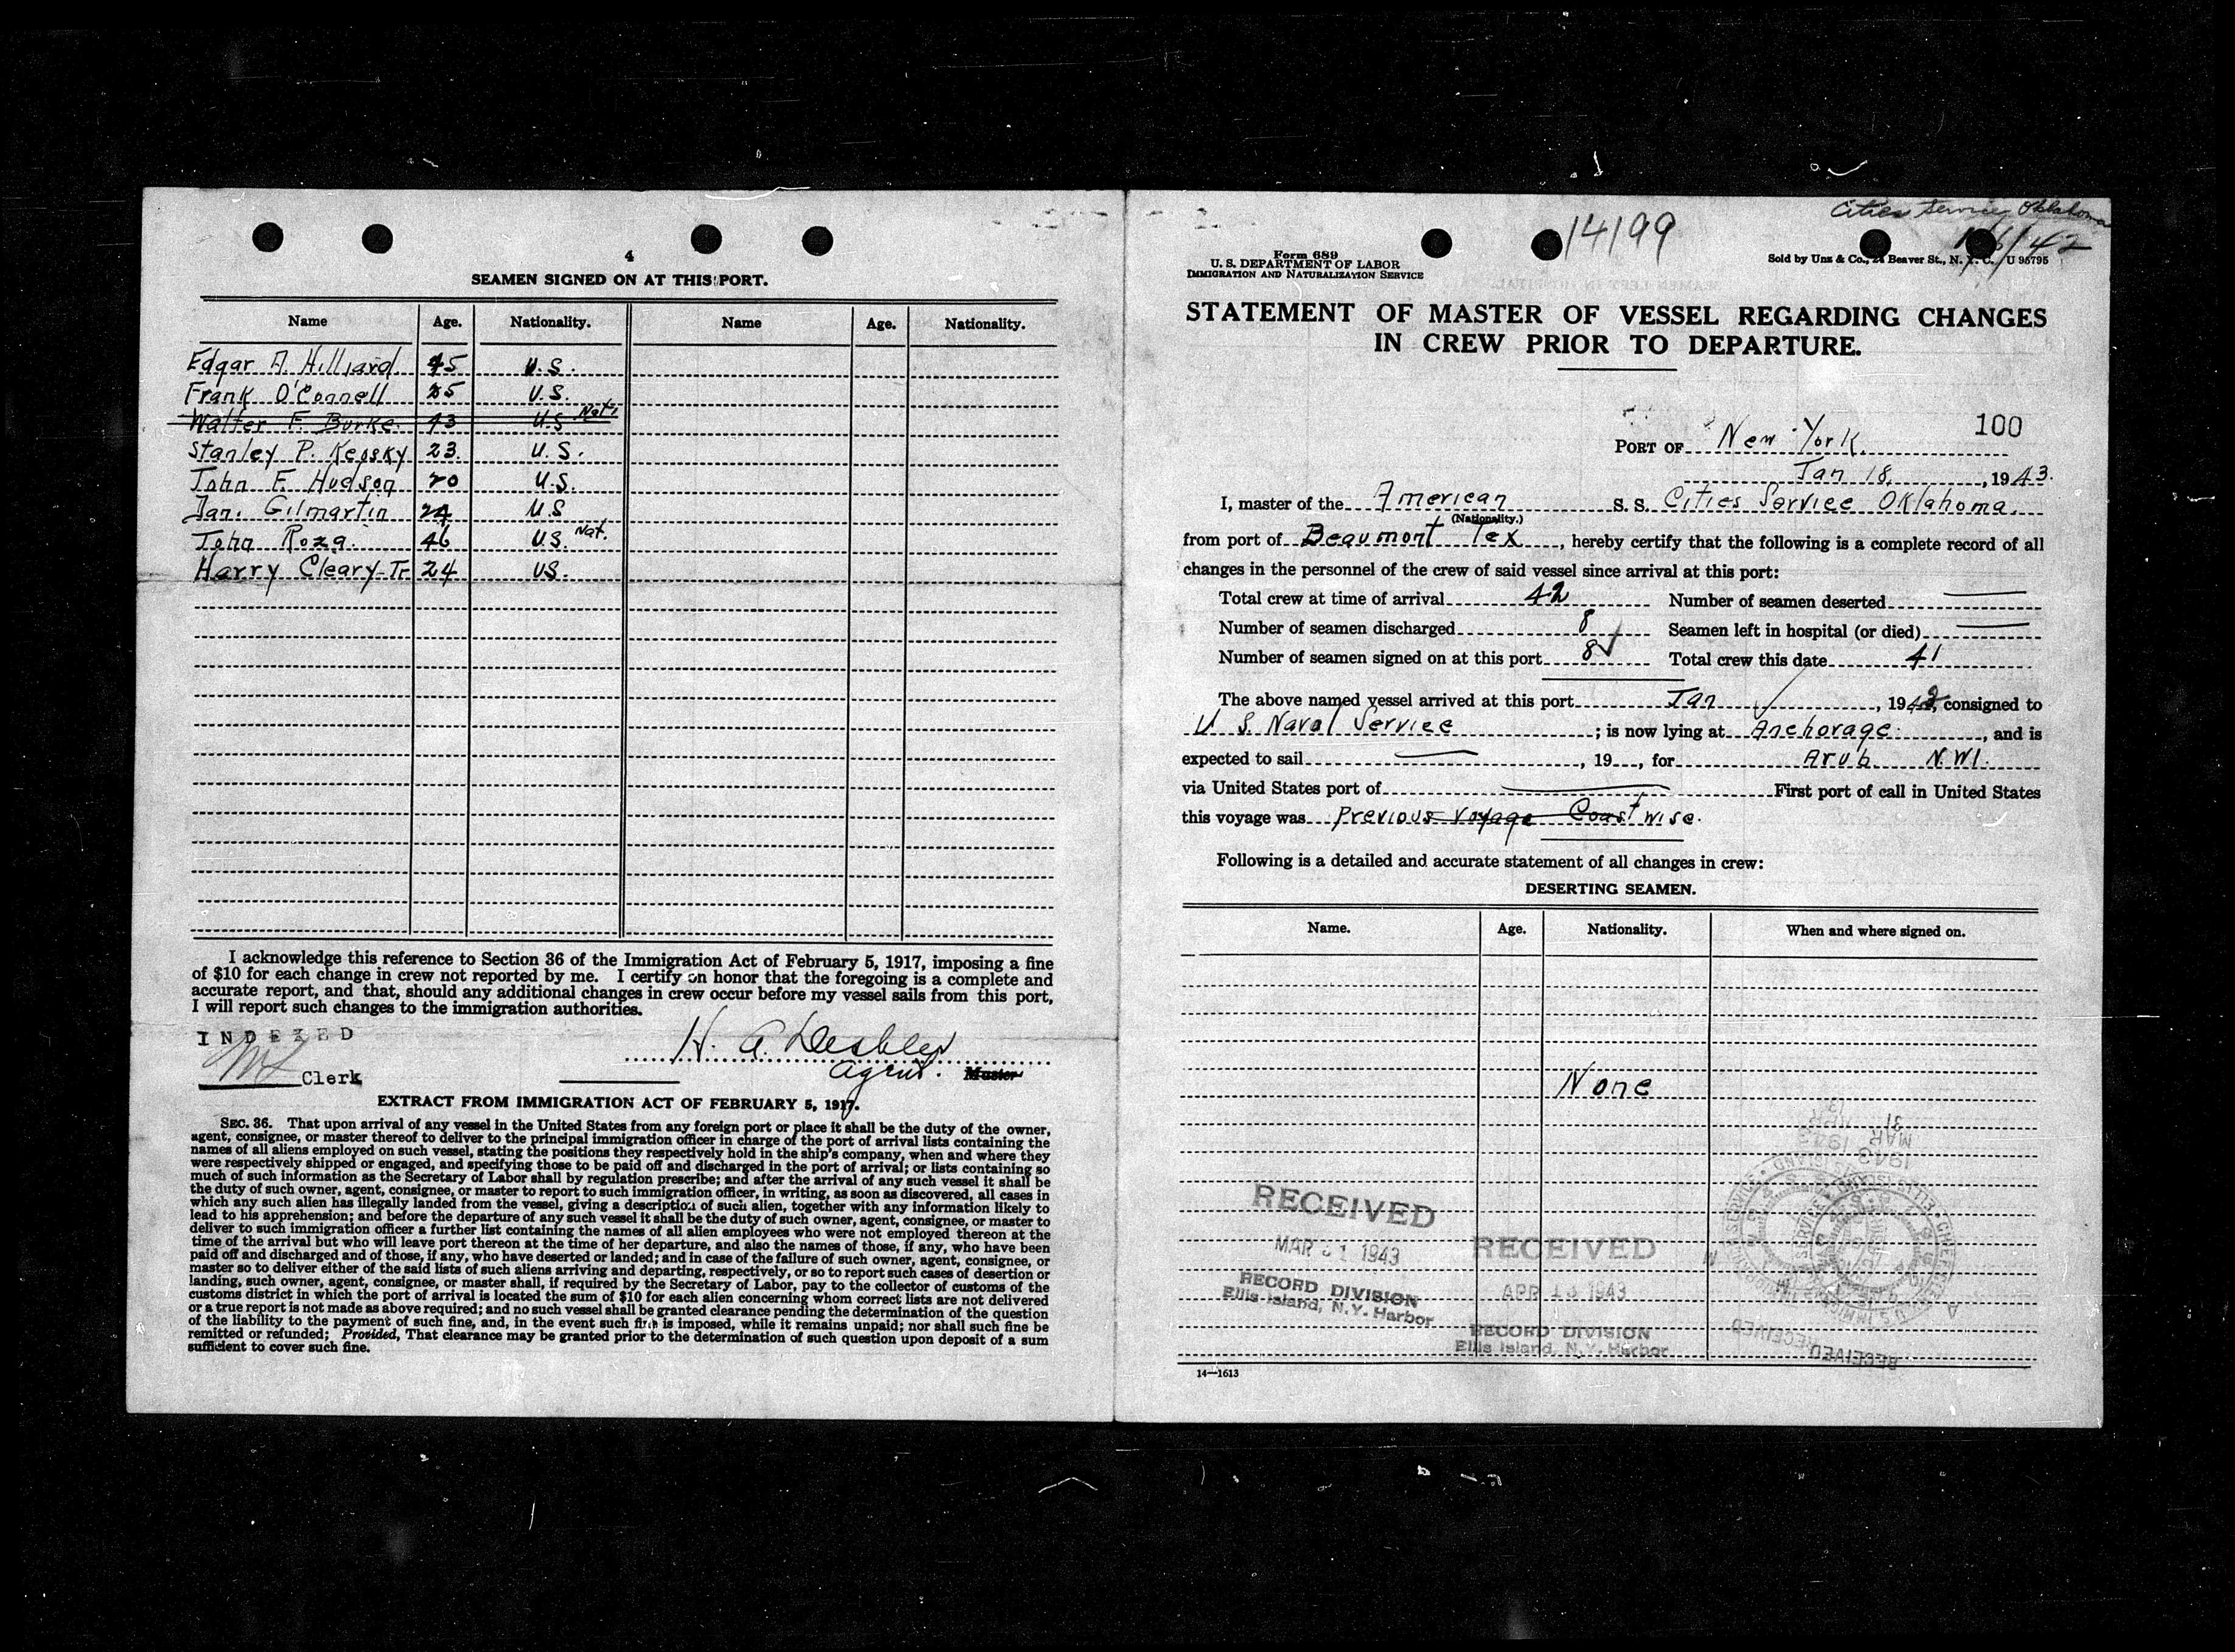 4
SEAMEN SIGNED ON AT THIS PORT.
Name Age. Nationality. Name Age. Nationality.
Edgar A. Hilliard 45 U.S.
Frank O'Connell 25 U.S.
Walter F. Burke 43 U.S. Nat.
Stanley P. Kepsky 23 U.S.
John F. Hudson 20 U.S.
Jan. Gilmartin 24 U.S
John Roza 46 U.S. Nat.
Harry Cleary Jr 24 US.
I acknowledge this reference to Section 36 of the Immigration Act of February 5, 1917, imposing a fine
of $10 for each change in crew not reported by me. I certify on honor that the foregoing is a complete and
accurate report, and that, should any additional changes in crew occur before my vessel sails from this port,
I will report such changes to the immigration authorities.
INDEXED
H. A.
Clerk
Agent. Master
EXTRACT FROM IMMIGRATION ACT OF FEBRUARY 5, 1917.
SEC. 36. That upon arrival of any vessel in the United States from any foreign port or place it shall be the duty of the owner,
agent, consignee, or master thereof to deliver to the principal immigration officer in charge of the port of arrival lists containing the
names of all aliens employed on such vessel, stating the positions they respectively hold in the ship's company, when and where they
were respectively shipped or engaged, and specifying those to be paid off and discharged in the port of arrival; or lists containing so
much of such information as the Secretary of Labor shall by regulation prescribe; and after the arrival of any such vessel it shall be
the duty of such owner, agent, consignee, or master to report to such immigration officer, in writing, as soon as discovered, all cases in
which any such alien has illegally landed from the vessel, giving a description of such alien, together with any information likely to
lead to his apprehension; and before the departure of any such vessel it shall be the duty of such owner, agent, consignee, or master to
deliver to such immigration officer a further list containing the names of all alien employees who were not employed thereon at the
time of the arrival but who will leave port thereon at the time of her departure, and also the names of those, if any, who have been
paid off and discharged and of those, if any, who have deserted or landed; and in case of the failure of such owner, agent, consignee, or
master so to deliver either of the said lists of such aliens arriving and departing, respectively, or so to report such cases of desertion or
landing, such owner, agent, consignee, or master shall, if required by the Secretary of Labor, pay to the collector of customs of the
customs district in which the port of arrival is located the sum of $10 for each alien concerning whom correct lists are not delivered
or a true report is not made as above required; and no such vessel shall be granted clearance pending the determination of the question
of the liability to the payment of such fine, and, in the event such fine is imposed, while it remains unpaid; nor shall such fine be
remitted or refunded; Provided, That clearance may be granted prior to the determination of such question upon deposit of a sum
sufficient to cover such fine.
Cities Service Oklahoma
14199
/42
Form 689
U. S. DEPARTMENT OF LABOR
IMMIGRATION AND NATURALIZATION SERVICE
Sold by Unz & Co., 24 Beaver St., N. Y. C. U 95795
STATEMENT OF MASTER OF VESSEL REGARDING CHANGES
IN CREW PRIOR TO DEPARTURE.
100
PORT OF New York.
Jan 18, 1943.
I, master of the American S. S. Cities Service Oklahoma,
(Nationality.)
from port of Beaumont Tex, hereby certify that the following is a complete record of all
changes in the personnel of the crew of said vessel since arrival at this port:
Total crew at time of arrival 42 Number of seamen deserted
Number of seamen discharged 8 Seamen left in hospital (or died)
Number of seamen signed on at this port 8 Total crew this date 41
The above named vessel arrived at this port Jan, 194, consigned to
U S. Naval Service; is now lying at Anchorage, and is
expected to sail, 19, for Arub N.W.I.
via United States port of First port of call in United States
this voyage was Previous voyage Coastwise.
Following is a detailed and accurate statement of all changes in crew:
DESERTING SEAMEN.
Name. Age. Nationality. When and where signed on.
None
RECEIVED
MAR 31 1943
RECORD DIVISION
Ellis Island, N.Y. Harbor
RECEIVED
APR 13 1943
RECORD DIVISION
Ellis Island, N.Y. Harbor
MAR 31
1943
RECEIVED
RECEIVED
14—1613